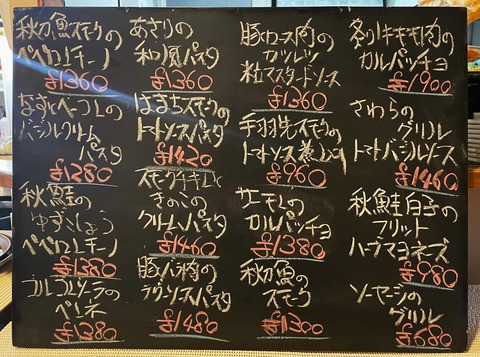 秋刀魚スモークの
ペペロンチーノ
¥1360
なすとベーコンの
バジルクリーム
パスタ
¥1280
秋鮭の
ゆずこしょう
ペペロンチーノ
¥1380
ゴルゴンゾーラの
ペンネ
¥1380
あさりの
和風パスタ
¥1360
はまちスモークの
トマトソースパスタ
¥1420
スモークチキンと
きのこの
クリームパスタ
¥1460
豚バラ肉の
ラグーソースパスタ
¥1480
豚ロース肉の
カツレツ
粒マスタードソース
¥1360
手羽先スモークの
トマトソース煮込み
¥960
サーモンの
カルパッチョ
¥1380
秋刀魚の
スモーク
¥1300
炙り牛モモ肉の
カルパッチョ
¥1900
さわらの
グリル
トマトバジルソース
¥1460
秋鮭白子の
フリット
ハーブマヨネーズ
¥980
ソーセージの
グリル
¥680